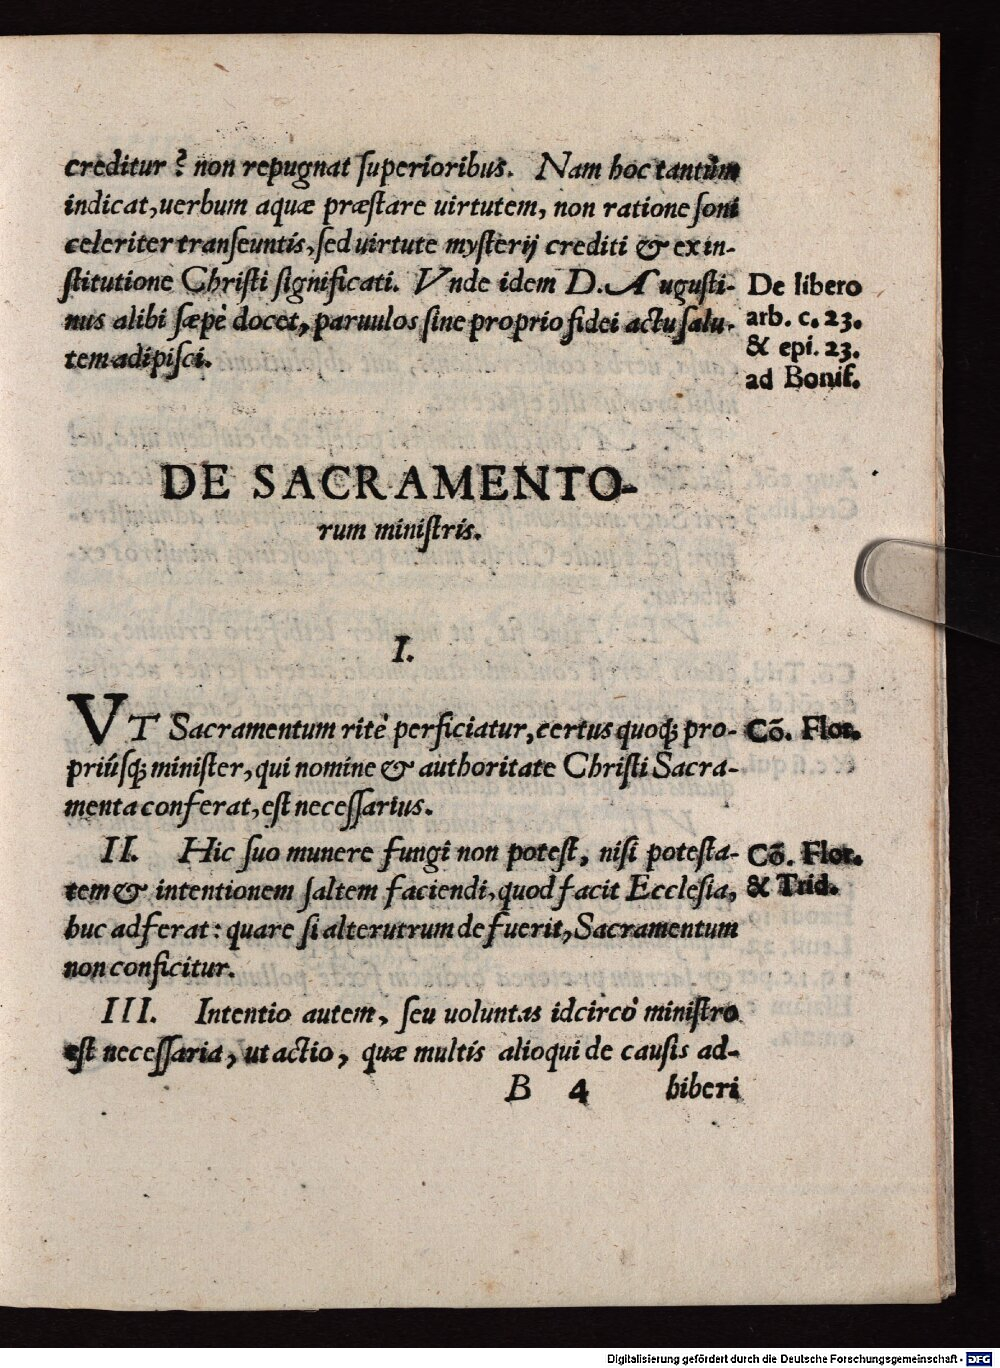 creditur? non repugnat ſuperioribus. Nam hoc tantùm
indicat, uerbum aquæ præſtare uirtutem, non ratione ſoni
celeriter tranſeuntis, ſed uirtute myſterij crediti & ex in-
ſtitutione Chriſti ſignificati. Vnde idem D. Auguſti-
nus alibi ſæpè docet, paruulos ſine proprio fidei actu ſalu-
tem adipiſci.
De libero
arb. c. 23.
& epi. 23.
ad Bonif.
DE SACRAMENTO-
rum miniſtris.
I.
VT Sacramentum ritè perficiatur, certus quoq; pro-
priúſq; miniſter, qui nomine & authoritate Chriſti Sacra-
menta conferat, eſt neceſſarius.
Cō. Flor.
II. Hic ſuo munere fungi non poteſt, niſi poteſta-
tem & intentionem ſaltem faciendi, quod facit Eccleſia,
huc adferat: quare ſi alterutrum defuerit, Sacramentum
non conficitur.
Cō. Flor.
& Trid.
III. Intentio autem, ſeu uoluntas idcircò miniſtro
eſt neceſſaria, ut actio, quæ multis alioqui de cauſis ad-
B 4 hiberi
Digitalisierung gefördert durch die Deutsche Forschungsgemeinschaft - DFG